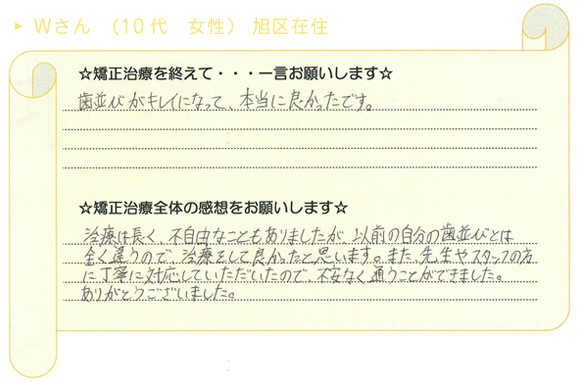 ▶ Wさん (10代 女性) 旭区在住
☆矯正治療を終えて・・・一言お願いします☆
歯並びがキレイになって、本当に良かったです。
☆矯正治療全体の感想をお願いします☆
治療は長く、不自由なこともありましたが、以前の自分の歯並びとは
全く違うので、治療をして良かったと思います。また、先生やスタッフの方
に丁寧に対応していただいたので、不安なく通うことができました。
ありがとうございました。